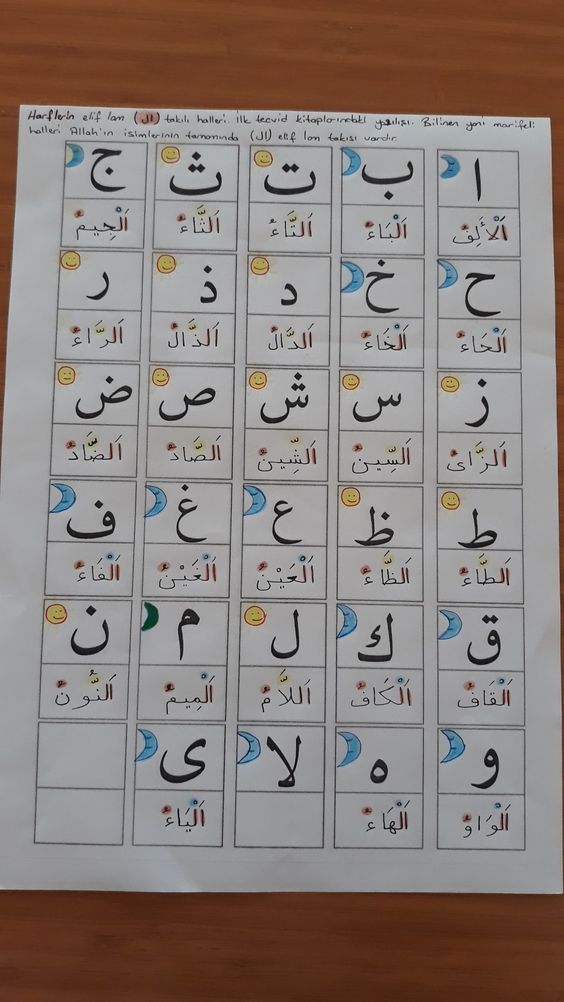 Harflerin elif lam (ال) takılı halleri. İlk tecvid kitaplarındaki yazılışı. Bilinen yani marifeli
halleri Allah'ın isimlerinin tamamında (ال) elif lam takısı vardır.
ا ب ت ث ج
اَلْأَلِفُ اَلْبَاءُ اَلتَّاءُ اَلثَّاءُ اَلْجِيمُ
ح خ د ذ ر
اَلْحَاءُ اَلْخَاءُ اَلدَّالُ اَلذَّالُ اَلرَّاءُ
ز س ش ص ض
اَلزَّاىُ اَلسِّينُ اَلشِّينُ اَلصَّادُ اَلضَّادُ
ط ظ ع غ ف
اَلطَّاءُ اَلظَّاءُ اَلْعَيْنُ اَلْغَيْنُ اَلْفَاءُ
ق ك ل م ن
اَلْقَافُ اَلْكَافُ اَللَّامُ اَلْمِيمُ اَلنُّونُ
و ه لا ى
اَلْوَاوُ اَلْهَاءُ اَلْيَاءُ